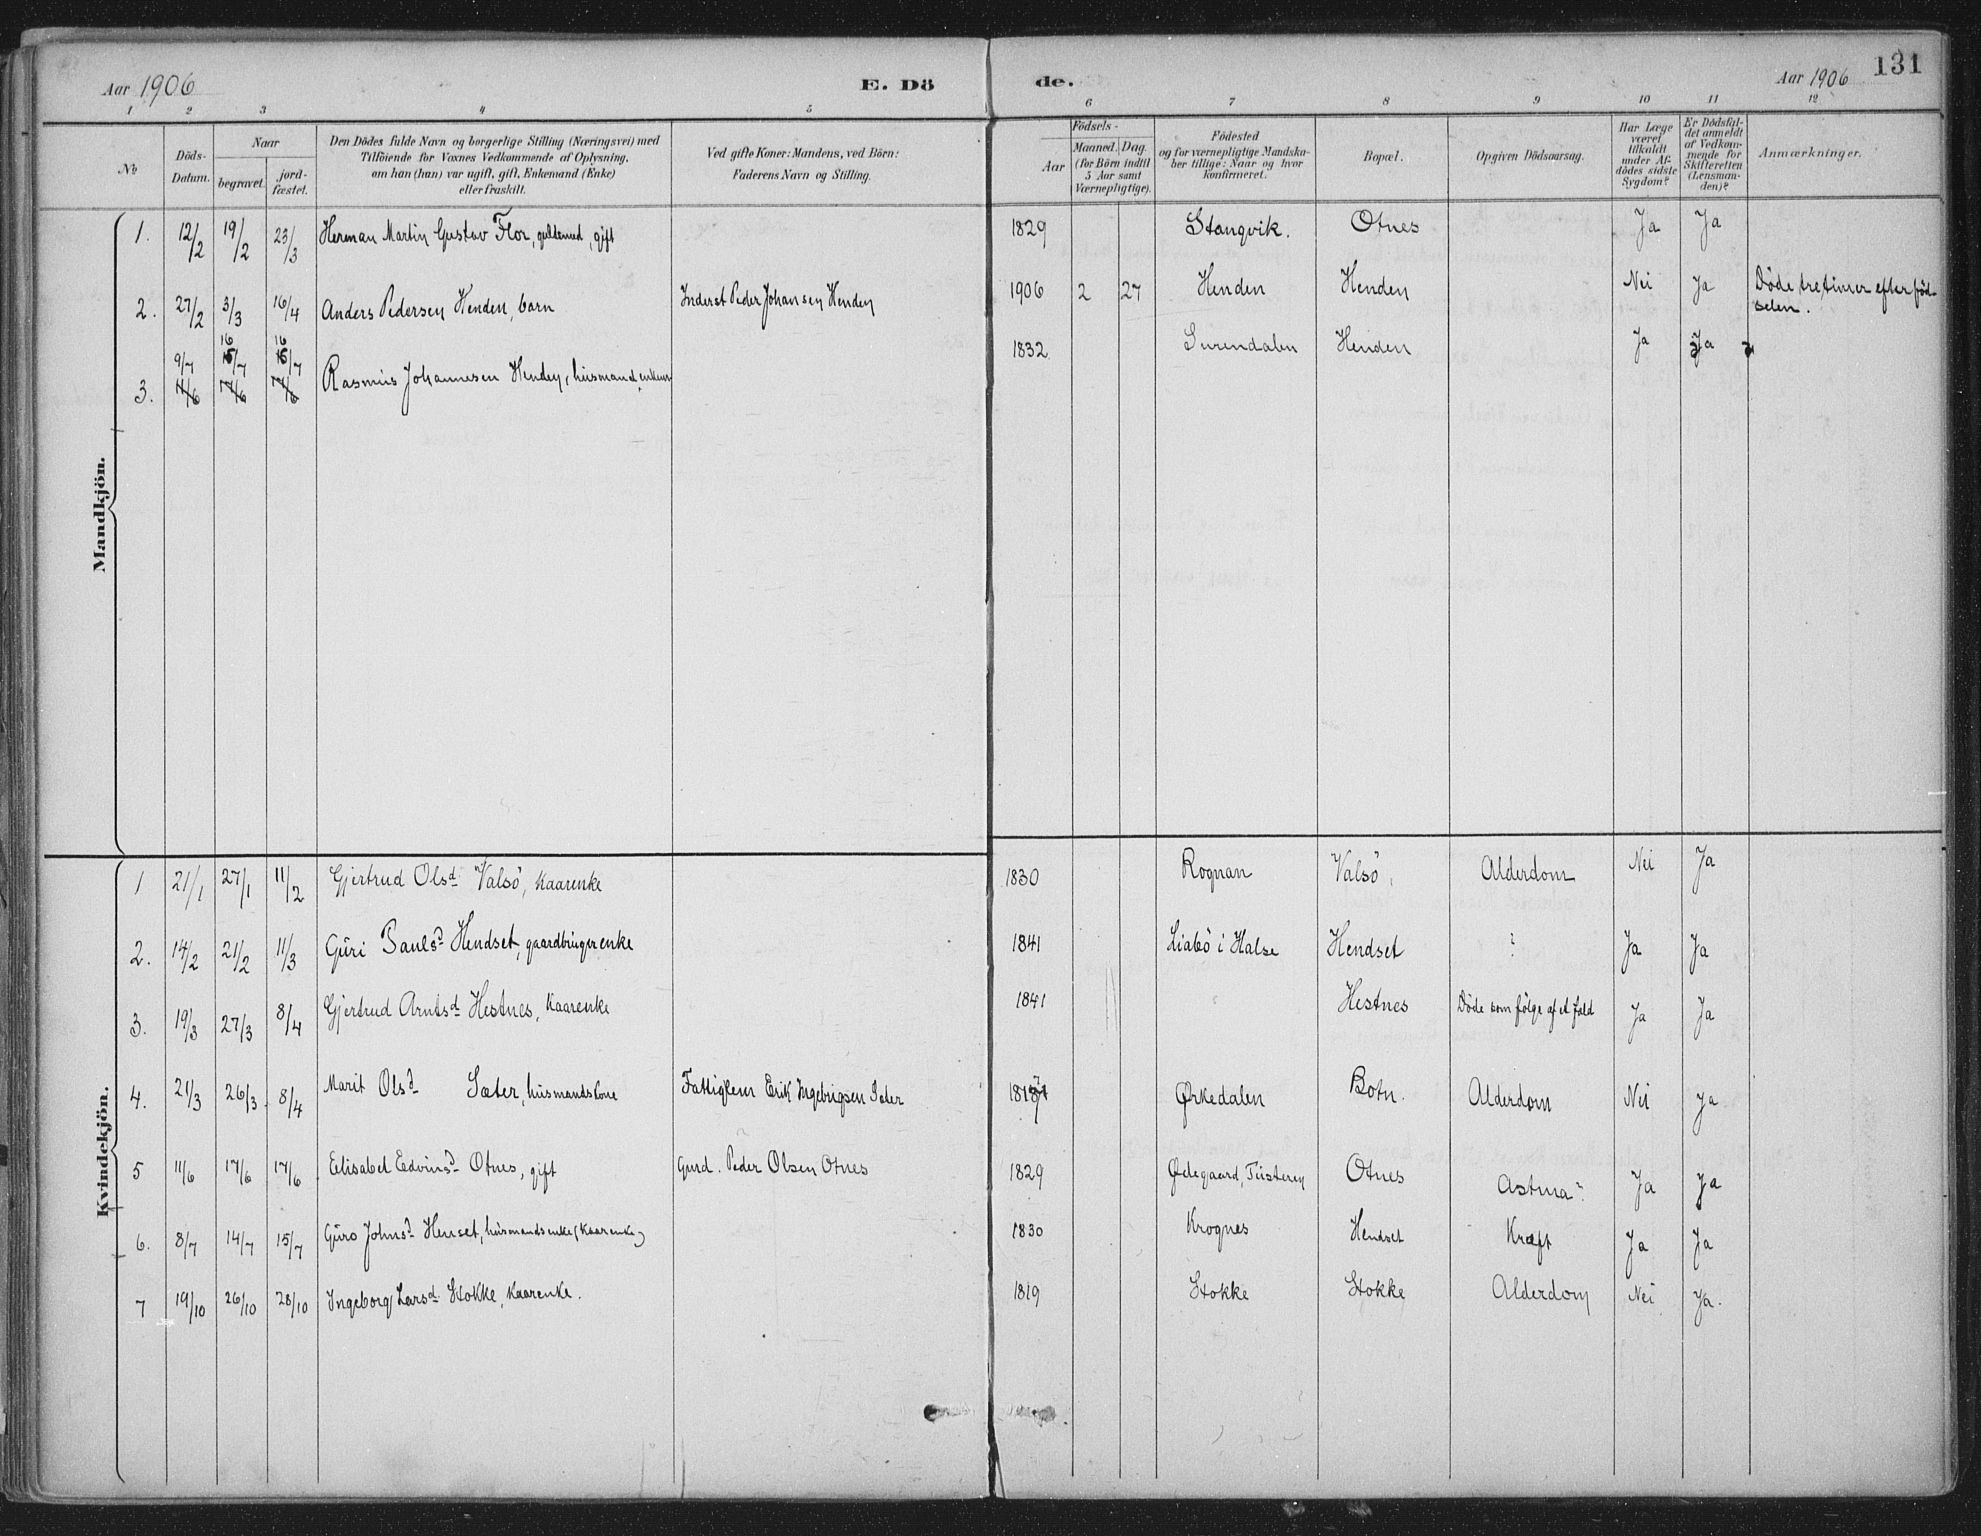 Aar 1906 E. Dö de. Aar 1906 131
1 2 3 4 5 6 7 8 9 10 11 12
No
Döds-Datum.
Naar
begravet.
jord-fæstet.
Den Dödes fulde Navn og borgerlige Stilling (Næringsvei) med
Tilföiende for Voxnes Vedkommende af Oplysning,
om han (hun) var ugift, gift, Enkemand (Enke)
eller fraskilt.
Ved gifte Koner: Mandens, ved Börn:
Faderens Navn og Stilling.
Födsels-
Aar
Maaned. Dag.
(for Börn indtil
5 Aar samt
Værnepligtige).
Födested
og for værnepligtige Mandska-
ber tillige: Naar og hvor
konfirmeret.
Bopæl.
Opgiven Dödsaarsag.
Har Læge
været
tilkaldt
under Af-
dödes sidste
Sygdom?
Er Dödsfal-
det anmeldt
af Vedkom-
mende for
Skifteretten
(Lensman-
den)?
Anmærkninger.
Mandkjön.
1. 12/2 19/2 23/3 Herman Martin Gustav Flor, guldsmed, gift 1829 Stangvik. Otnes Ja Ja
2. 27/2 3/3 16/4 Anders Pedersen Henden, barn Inderst Peder Johansen Henden 1906 2 27 Henden Henden Nei Ja Døde tre timer efter fød-
selen.
9/7 16/7 16/7
3. 11/6 17/6 17/6 Rasmus Johannesen Henden, husmand, enkem 1832 Surendalen Henden Ja Ja
Kvindekjön.
1 21/1 27/1 11/2 Gjertrud Olsd Valsö, kaarenke 1830 Rognan Valsö, Alderdom Nei Ja
2. 14/2 21/2 11/3 Guri Paulsd Hendset, gaardbrugerenke 1841 Liabö i Halse Hendset ? Ja Ja
3. 19/3 27/3 8/4 Gjertrud Arntsd Hestnes, kaarenke 1841 Hestnes Døde som følge af et fald Ja Ja
4. 21/3 26/3 8/4 Marit Olsd Sæter, husmandskone Fattiglem Erik Ingebrigtsen Sæter Ørkedalen Botn. Alderdom Nei Ja
5 11/6 17/6 17/6 Elisabet Edvinsd Otnes, gift Gmd. Peder Olsen Otnes 1829 Ødegaard, Tusteren Otnes Astma? Ja Ja
6. 8/7 14/7 15/7 Guro Johnsd Henset, husmandsenke (kaarenke) 1830 Krognes Hendset Kræft Ja Ja
7 19/10 26/10 28/10 Ingeborg Larsd Stokke, kaarenke. 1819 Stokke Stokke Alderdom Nei Ja.